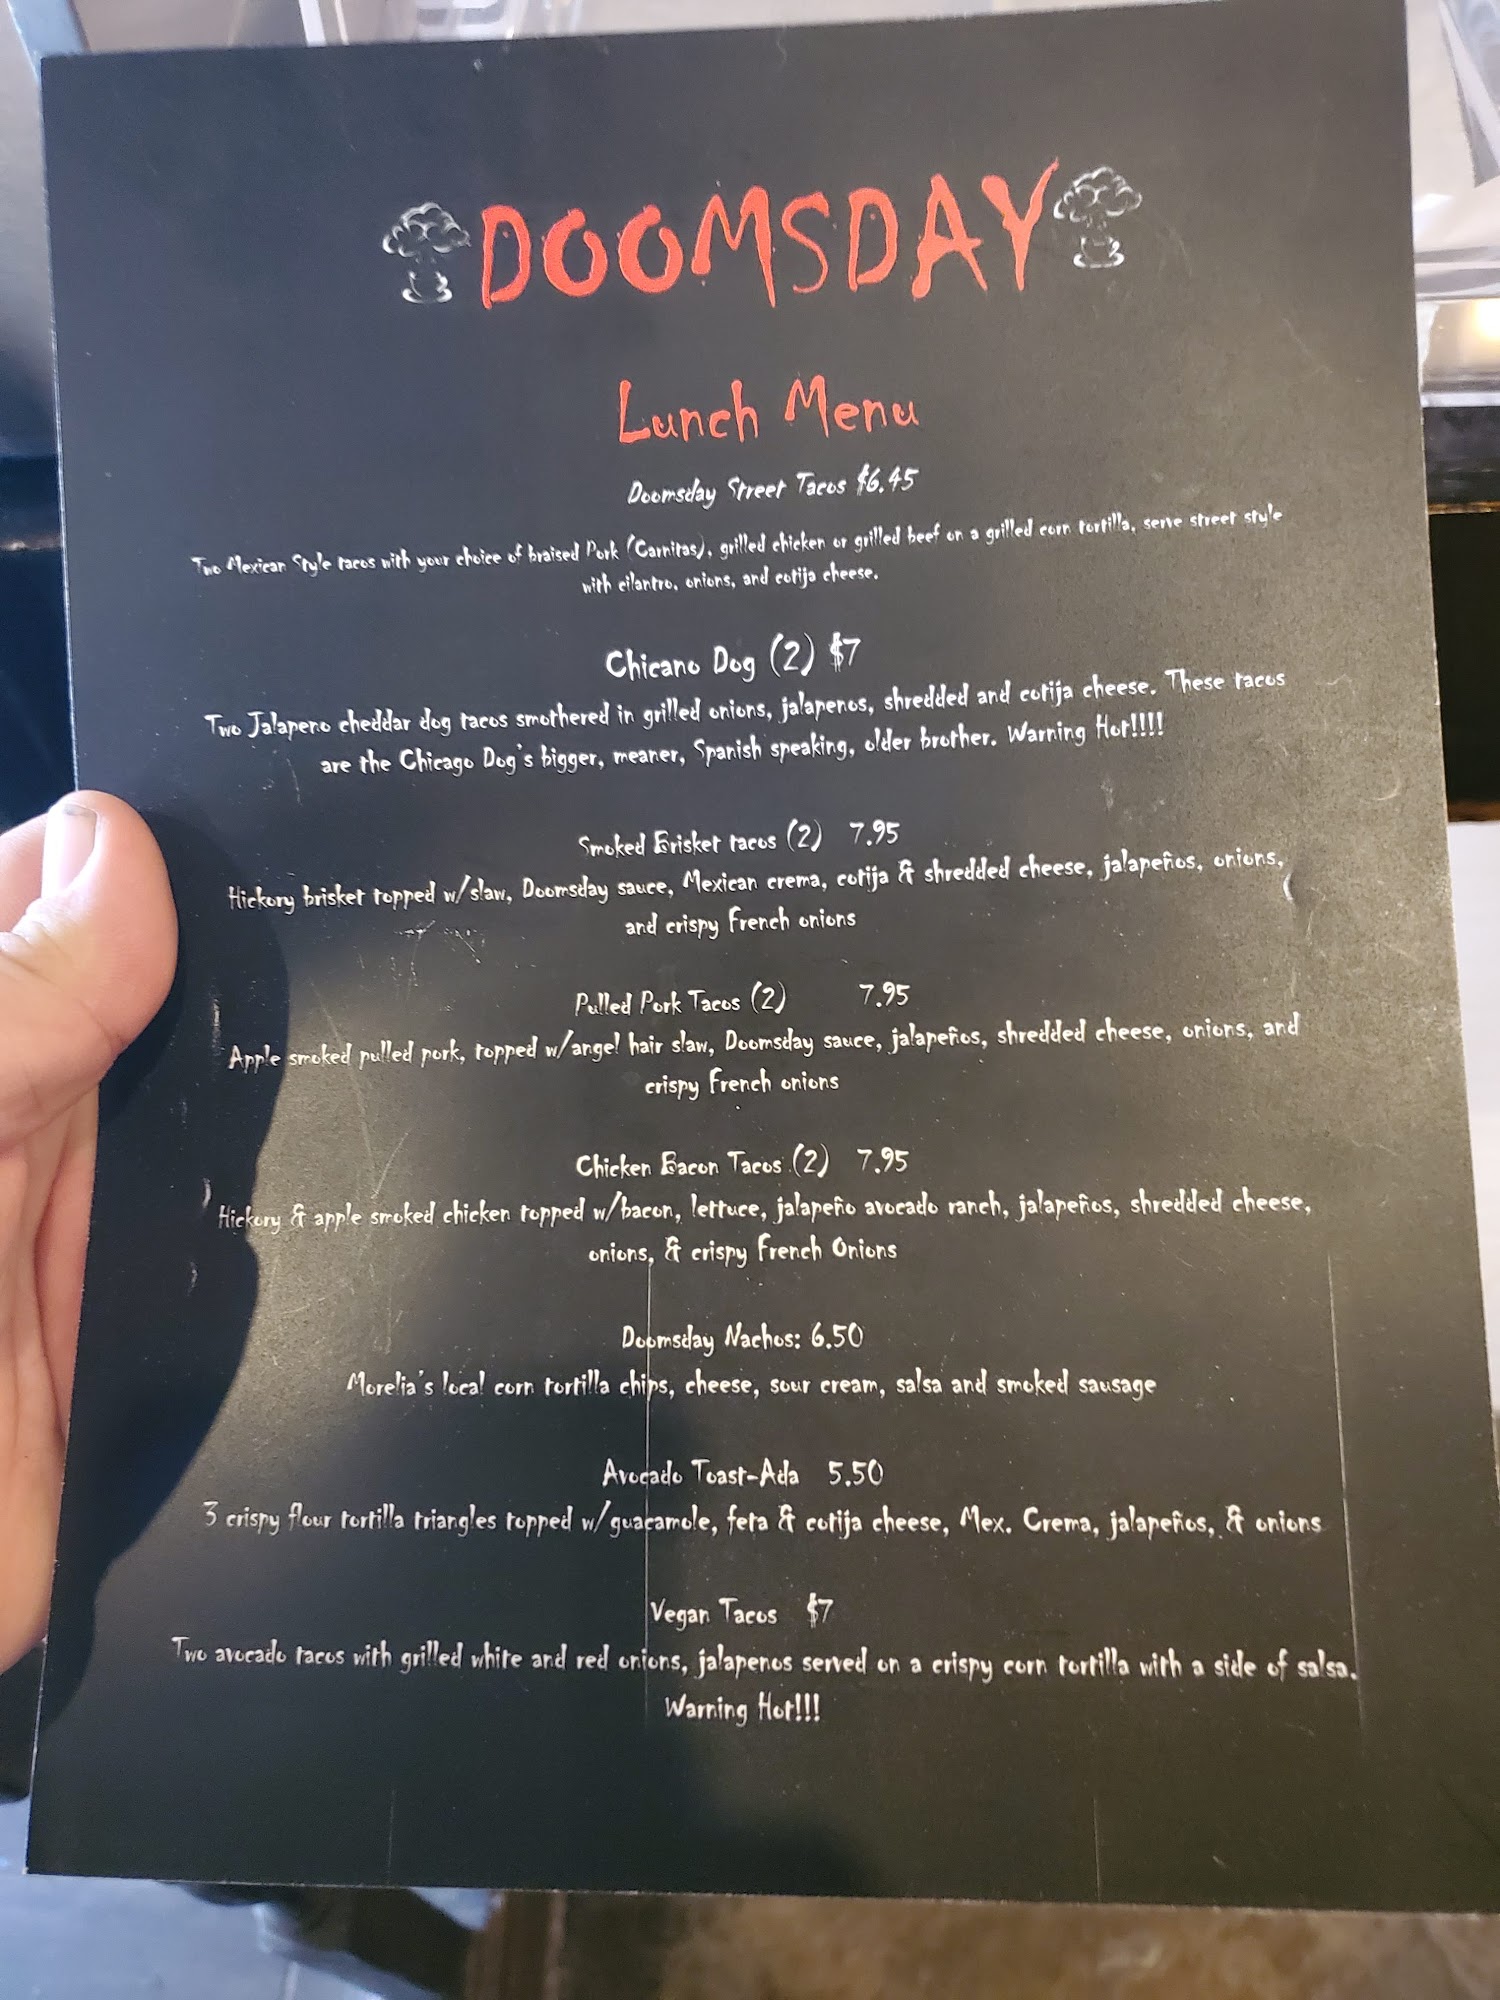 DOOMSDAY
Lunch Menu
Doomsday Street Tacos $6.45
Two Mexican Style tacos with your choice of braised Pork (Carnitas), grilled chicken or grilled beef on a grilled corn tortilla, serve street style
with cilantro, onions, and cotija cheese.
Chicano Dog (2) $7
Two Jalapeno cheddar dog tacos smothered in grilled onions, jalapenos, shredded and cotija cheese. These tacos
are the Chicago Dog's bigger, meaner, Spanish speaking, older brother. Warning Hot!!!!
Smoked Brisket tacos (2) 7.95
Hickory brisket topped w/slaw, Doomsday sauce, Mexican crema, cotija & shredded cheese, jalapeños, onions,
and crispy French onions
Pulled Pork Tacos (2) 7.95
Apple smoked pulled pork, topped w/angel hair slaw, Doomsday sauce, jalapeños, shredded cheese, onions, and
crispy French onions
Chicken Bacon Tacos (2) 7.95
Hickory & apple smoked chicken topped w/bacon, lettuce, jalapeño avocado ranch, jalapeños, shredded cheese,
onions, & crispy French Onions
Doomsday Nachos: 6.50
Morelia's local corn tortilla chips, cheese, sour cream, salsa and smoked sausage
Avocado Toast-Ada 5.50
3 crispy flour tortilla triangles topped w/guacamole, feta & cotija cheese, Mex. Crema, jalapeños, & onions
Vegan Tacos $7
Two avocado tacos with grilled white and red onions, jalapenos served on a crispy corn tortilla with a side of salsa.
Warning Hot!!!